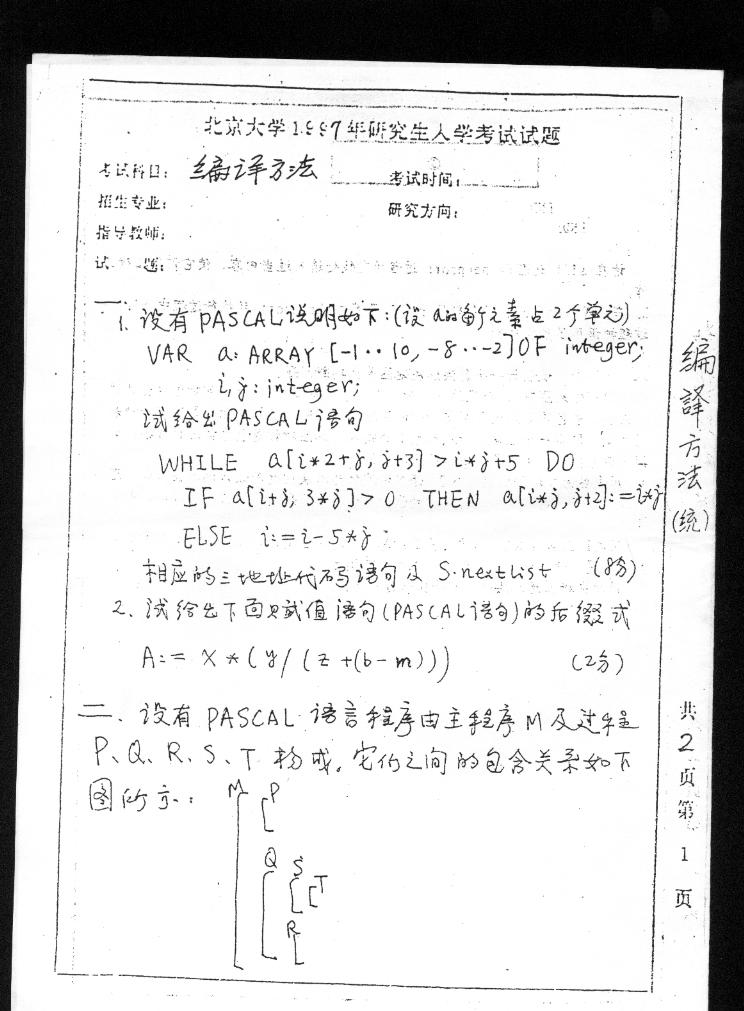 北京大学1997年研究生入学考试试题
考试科目： 编译方法
考试时间：
招生专业：
研究方向：
指导教师：
试 题：
一 1. 设有PASCAL说明如下：(设a的每个元素占2个单元)
VAR a: ARRAY [-1··10, -8··-2] OF integer;
i, j: integer;
试给出PASCAL语句
WHILE a[i*2+j, j+3] > i*j+5 DO
IF a[i+j, 3*j] > 0 THEN a[i*j, j+2]:=i*j
ELSE i:=i-5*j
相应的三地址代码语句及 S.nextlist (8分)
2. 试给出下面赋值语句(PASCAL语句)的后缀式
A:= X*(y/(z+(b-m))) (2分)
二、设有PASCAL语言程序由主程序M及过程
P、Q、R、S、T构成。它们之间的包含关系如下
图所示：
M P
Q S
T
R
编譯方法(统)
共2页第1页